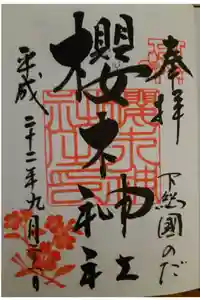 奉拝
下総國のだ
櫻木神社
平成二十二年九月